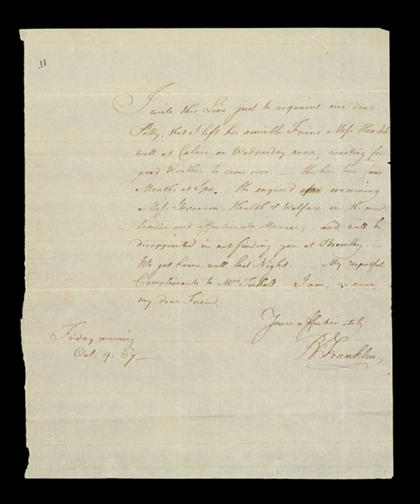 11
I write this Line just to acquaint our dear
Polly, that I left her amiable Friend Miss
well at Calais on Wednesday noon, waiting for
good Weather to come over. — She has been one
Month at Spa. She enquired concerning
Miss Stevenson's Health & Welfare in the most
tender and affectionate Manner, and will be
disappointed in not finding you at Bromley. —
We got home well last Night. My respectful
Compliments to Mrs Tickell. I am, as ever,
my dear Friend,
Yours affectionately
B Franklin
Friday morning
Oct. 9. 67 —